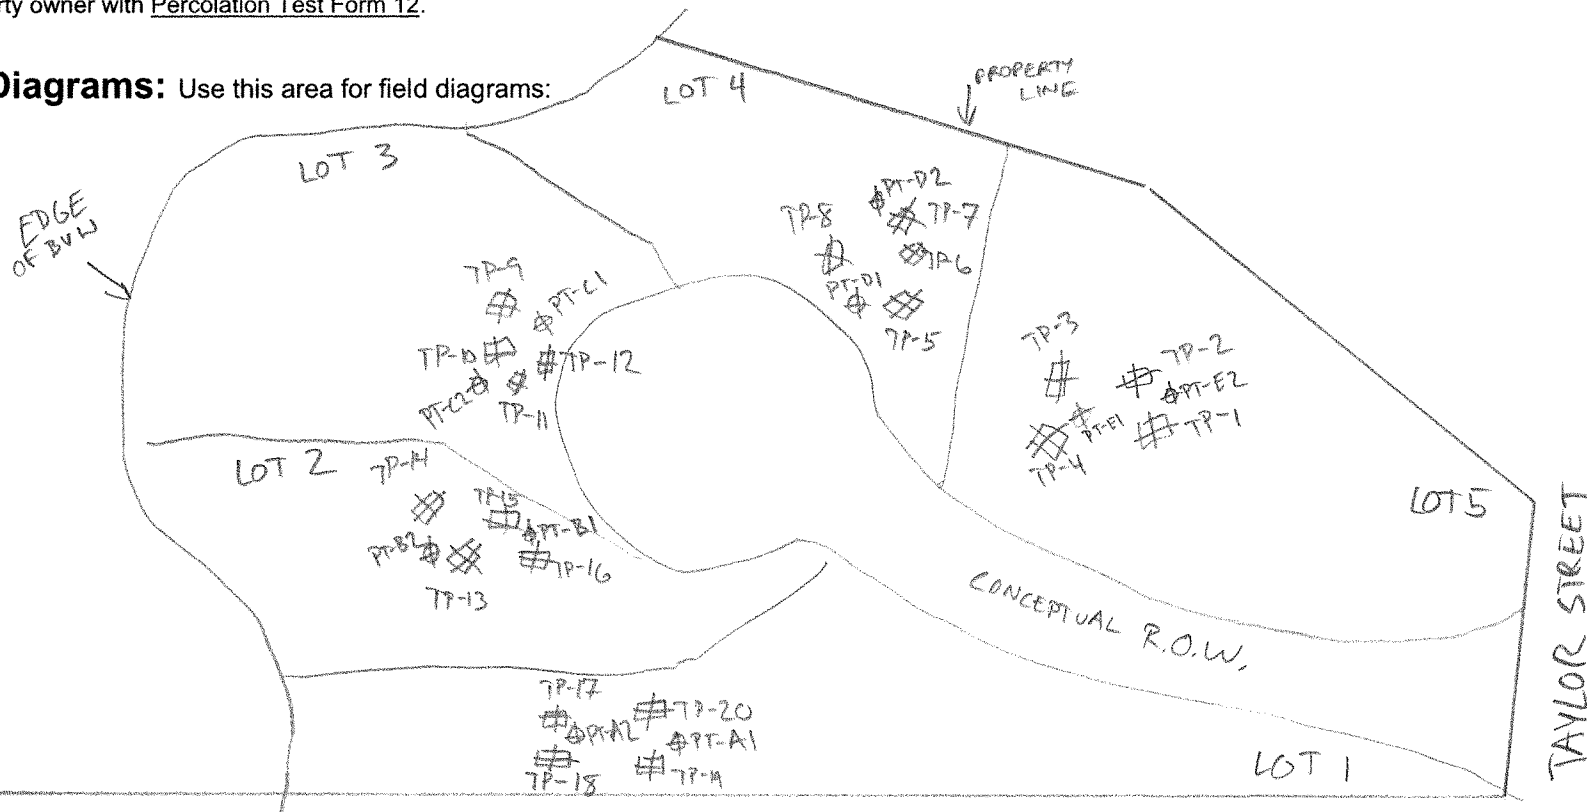 rty owner with Percolation Test Form 12.
Diagrams: Use this area for field diagrams:
PROPERTY
LINE
LOT 4
LOT 3
EDGE
OF BVW
PT-D2
TP-7
TP-8
TP-6
PT-D1
TP-5
TP-9
PT-C1
TP-10
TP-12
PT-C2
TP-11
TP-3
TP-2
PT-E2
PT-E1
TP-1
TP-4
LOT 2
TP-14
TP-15
PT-B1
PT-B2
TP-16
TP-13
LOT 5
TAYLOR STREET
CONCEPTUAL R.O.W.
TP-17
TP-20
PT-A2
PT-A1
TP-18
TP-19
LOT 1